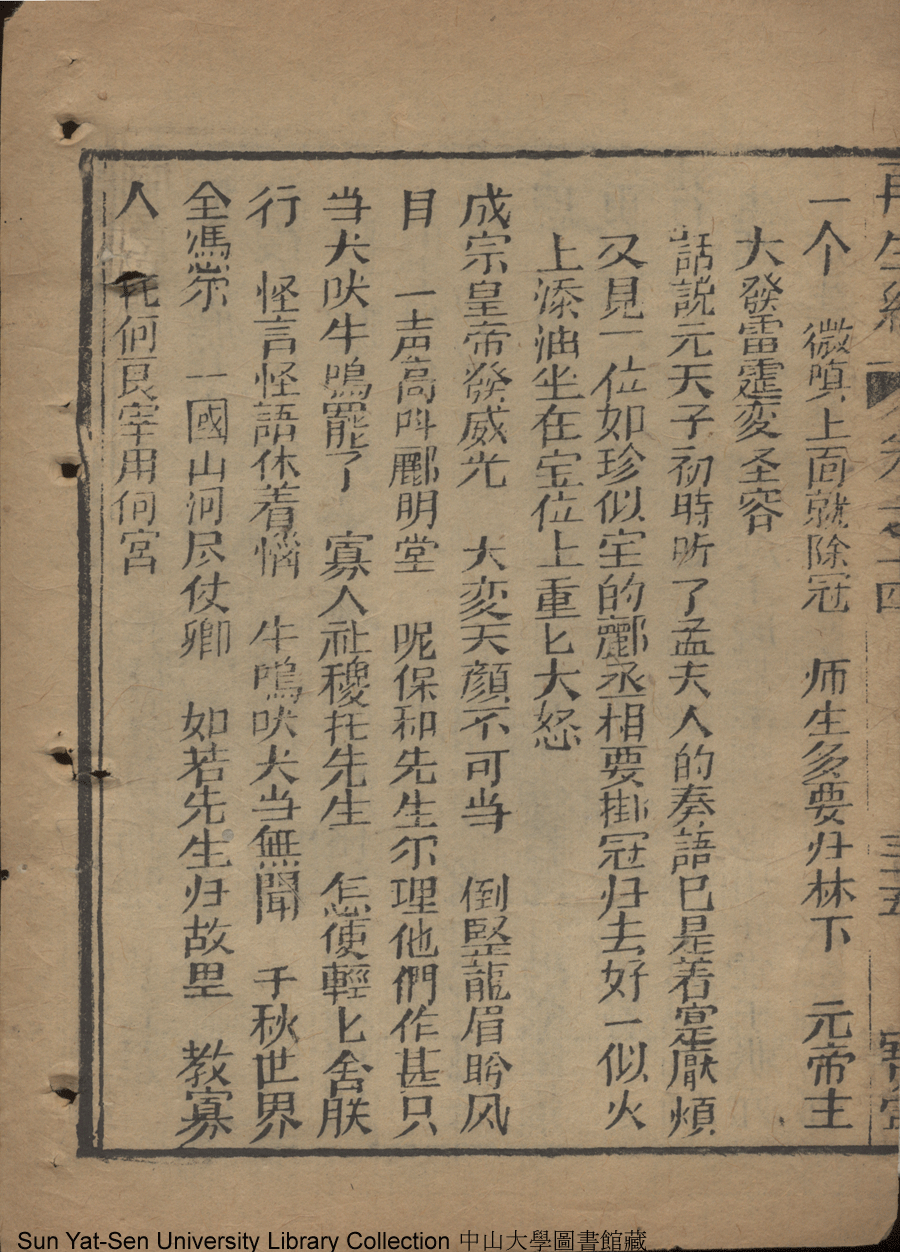 再生緣 卷之十四 三十五
一个 微嗔上面就除冠 师生多要归林下 元帝主
大發雷霆変圣容
話説元天子初時听了孟夫人的奏語已是着寔厭煩
又見一位如珍似宝的酈丞相要掛冠归去好一似火
上添油坐在宝位上重匕大怒
成宗皇帝發威光 大変天顔不可当 倒竪龍眉睁凤
目 一声高叫酈明堂 呢保和先生尔理他們作甚只
当犬吠牛鳴罷了 寡人社稷托先生 怎便輕匕舍朕
行 怪言怪語休着惱 牛鳴吠犬当無聞 千秋世界
全馮尔 一國山河尽仗卿 如若先生归故里 教寡
人 托何良宰用何宮
Sun Yat-Sen University Library Collection 中山大學圖書館藏